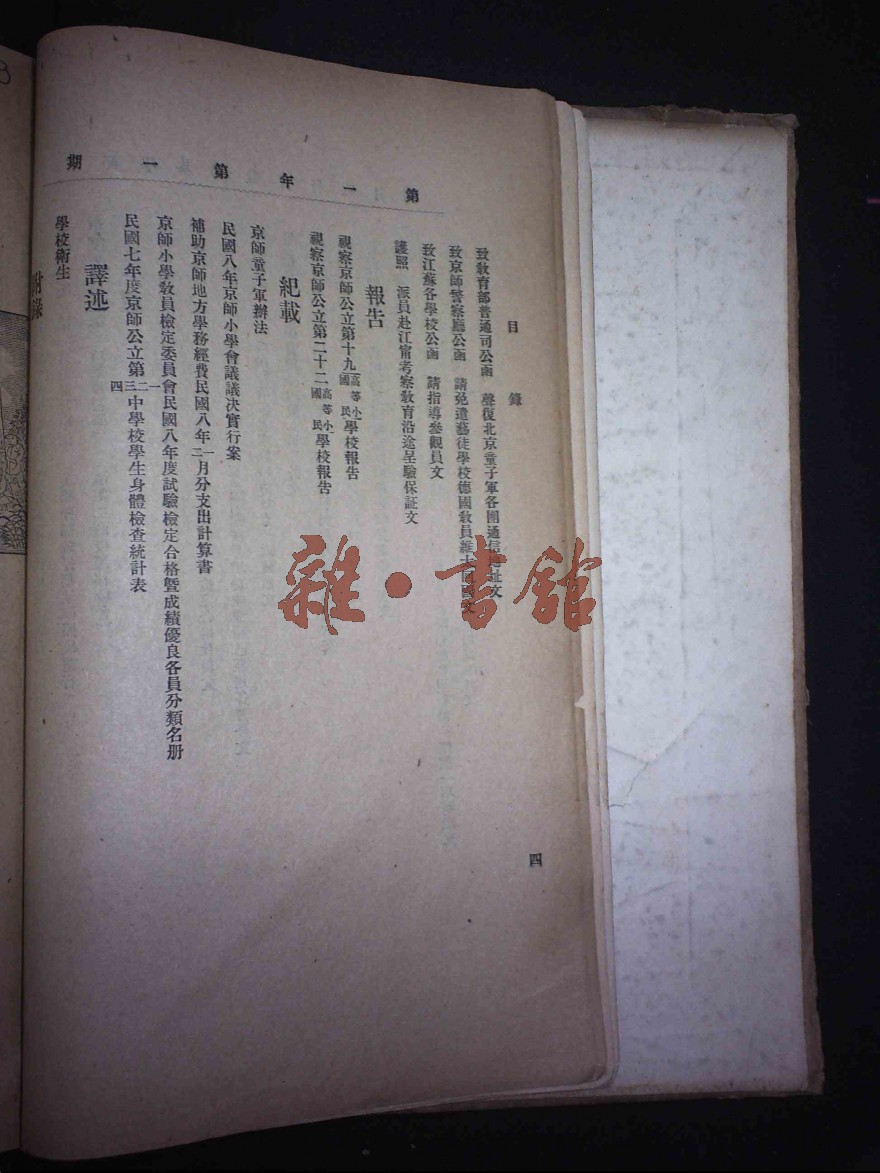 第一年第一期
目錄
四
致教育部普通司公函 聲復北京童子軍各團通信地址文
致京師警察廳公函 請免遣藝徒學校德國教員
致江蘇各學校公函 請指導參觀員文
護照 派員赴江甯考察教育沿途呈驗保証文
報告
視察京師公立第十九高等小國民學校報告
視察京師公立第二十二高等小國民學校報告
紀載
京師童子軍辦法
民國八年京師小學會議議決實行案
補助京師地方學務經費民國八年一二月分支出計算書
京師小學教員檢定委員會民國八年度試驗檢定合格暨成績優良各員分類名册
民國七年度京師公立第一二三四中學校學生身體檢查統計表
譯述
學校衛生
附錄
雜·書館